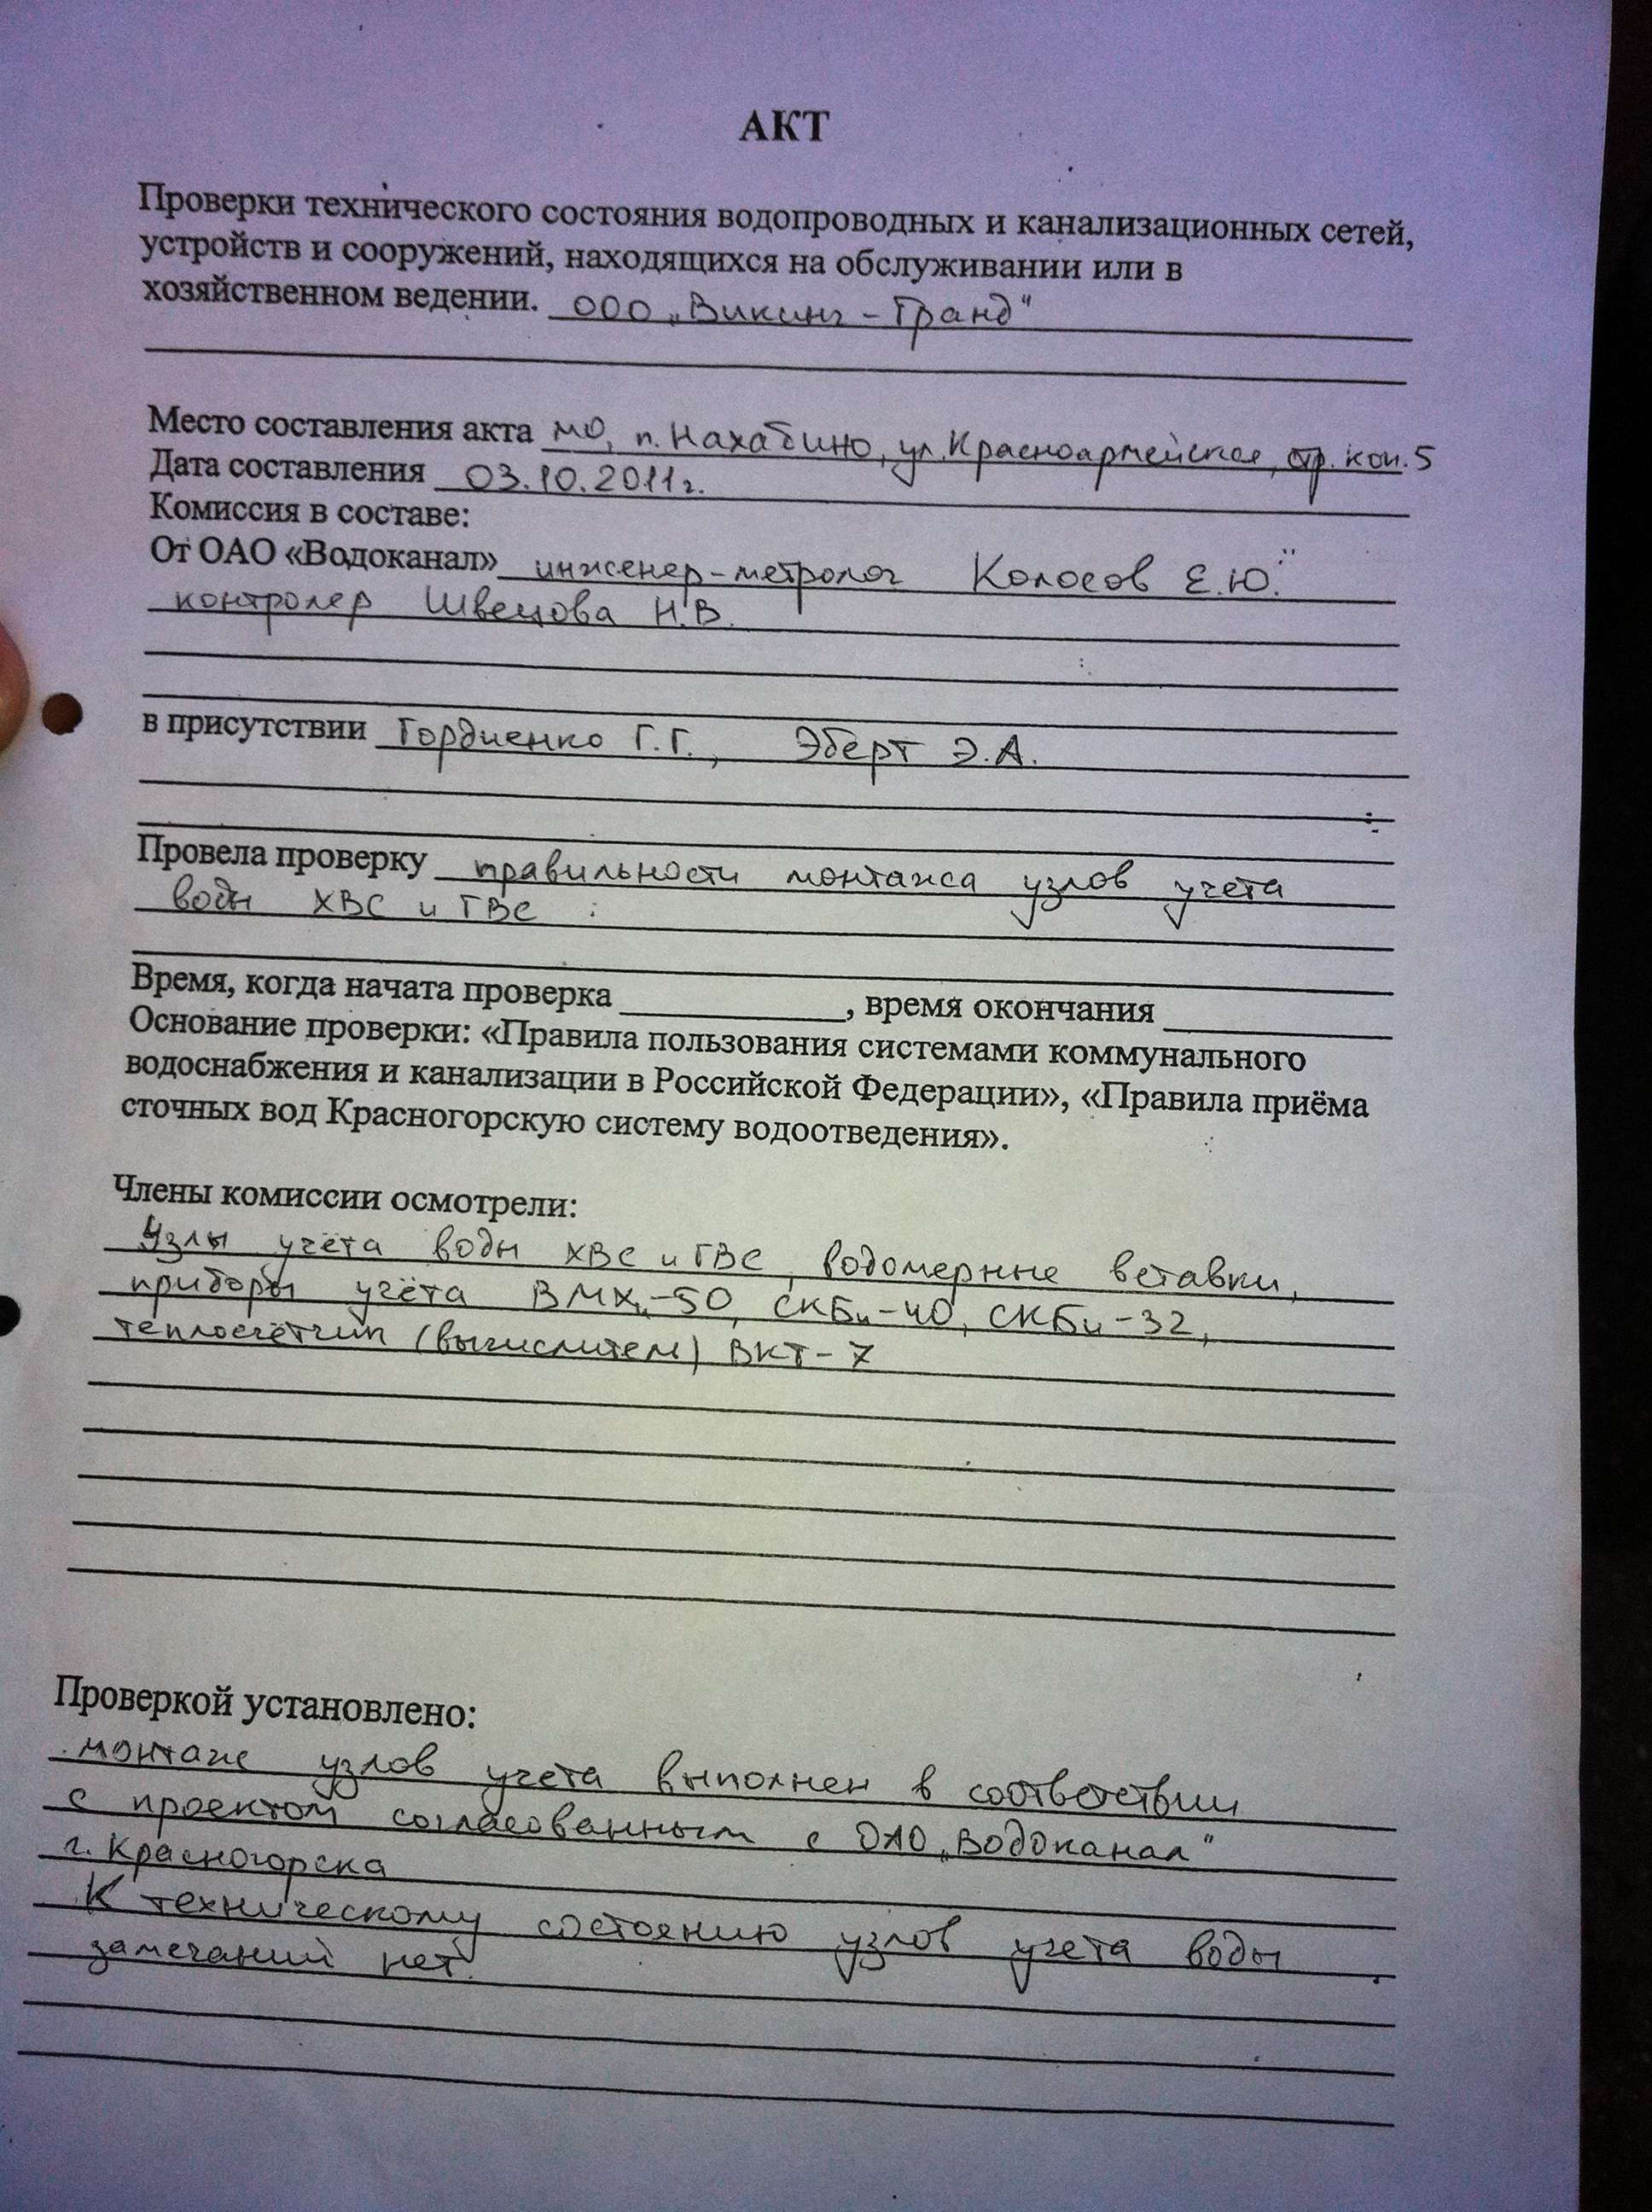 АКТ
Проверки технического состояния водопроводных и канализационных сетей,
устройств и сооружений, находящихся на обслуживании или в
хозяйственном ведении. ООО „Викинг-Гранд"
Место составления акта МО, п. Нахабино, ул. Красноармейская, стр. кон. 5
Дата составления 03.10.2011г.
Комиссия в составе:
От ОАО «Водоканал» инженер-метролог Колосов Е.Ю.
контролер Швецова Н.В.
в присутствии Гордиенко Г.Г., Эберт Э.А.
Провела проверку правильности монтажа узлов учета
воды ХВС и ГВС
Время, когда начата проверка ____________, время окончания ____________
Основание проверки: «Правила пользования системами коммунального
водоснабжения и канализации в Российской Федерации», «Правила приёма
сточных вод Красногорскую систему водоотведения».
Члены комиссии осмотрели:
Узлы учёта воды ХВС и ГВС, водомерные вставки,
приборы учёта ВМХи-50, СКБи-40, СКБи-32,
теплосчётчик (вычислитель) ВКТ-7
Проверкой установлено:
монтаж узлов учета выполнен в соответствии
с проектом согласованным с ОАО „Водоканал"
г. Красногорска
К техническому состоянию узлов учета воды
замечаний нет.